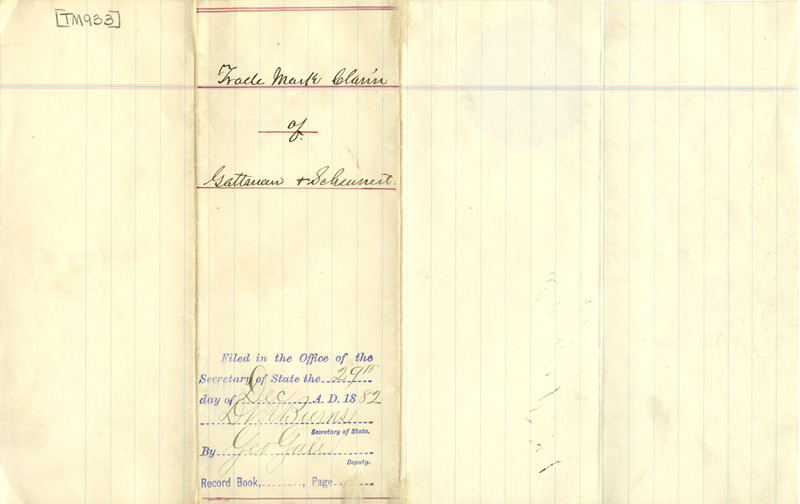 [TM933]
Trade Mark Claim
of
Gattanan & Scheunert.
Filed in the Office of the
Secretary of State the 29th
day of Dec A. D. 1882
D M Burns
Secretary of State.
By Geo
Deputy.
Record Book, , Page